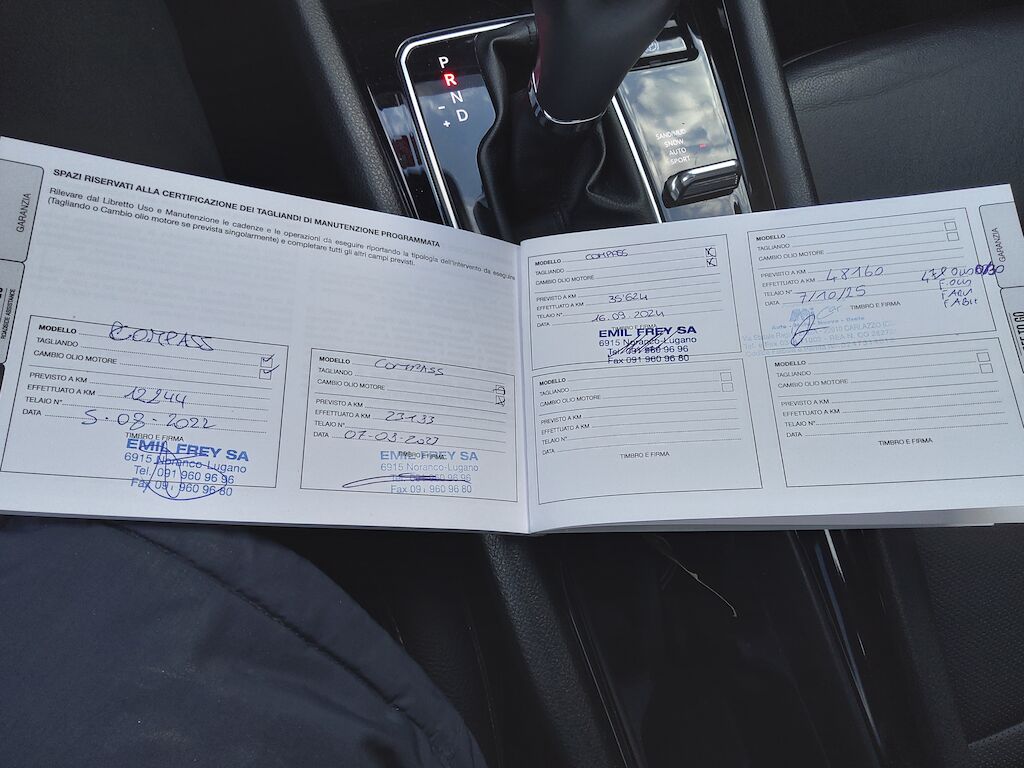 P
R
N
D
-
+
SAND/MUD
SNOW
AUTO
SPORT
GARANZIA
ROADSIDE ASSISTANCE
SPAZI RISERVATI ALLA CERTIFICAZIONE DEI TAGLIANDI DI MANUTENZIONE PROGRAMMATA
Rilevare dal Libretto Uso e Manutenzione le cadenze e le operazioni da eseguire riportando la tipologia dell'intervento da eseguire
(Tagliando o Cambio olio motore se prevista singolarmente) e completare tutti gli altri campi previsti.
MODELLO COMPASS
TAGLIANDO
CAMBIO OLIO MOTORE
PREVISTO A KM
EFFETTUATO A KM 12244
TELAIO N°
DATA 5-08-2022
TIMBRO E FIRMA
EMIL FREY SA
6915 Noranco-Lugano
Tel. 091 960 96 96
Fax 091 960 96 80
MODELLO COMPASS
TAGLIANDO
CAMBIO OLIO MOTORE
PREVISTO A KM
EFFETTUATO A KM 23133
TELAIO N°
DATA 07-03-2023
TIMBRO E FIRMA
EMIL FREY SA
6915 Noranco-Lugano
Tel. 091 960 96 96
Fax 091 960 96 80
MODELLO COMPASS
TAGLIANDO
CAMBIO OLIO MOTORE
PREVISTO A KM
EFFETTUATO A KM 35'624
TELAIO N°
DATA 16.09.2024
TIMBRO E FIRMA
EMIL FREY SA
6915 Noranco-Lugano
Tel. 091 960 96 96
Fax 091 960 96 80
MODELLO
TAGLIANDO
CAMBIO OLIO MOTORE
PREVISTO A KM
EFFETTUATO A KM 48160
TELAIO N°
DATA 7/10/25
TIMBRO E FIRMA
F. OLIO
F ARIA
F ABIT
CARLAZZO
MODELLO
TAGLIANDO
CAMBIO OLIO MOTORE
PREVISTO A KM
EFFETTUATO A KM
TELAIO N°
DATA
TIMBRO E FIRMA
MODELLO
TAGLIANDO
CAMBIO OLIO MOTORE
PREVISTO A KM
EFFETTUATO A KM
TELAIO N°
DATA
TIMBRO E FIRMA
GARANZIA